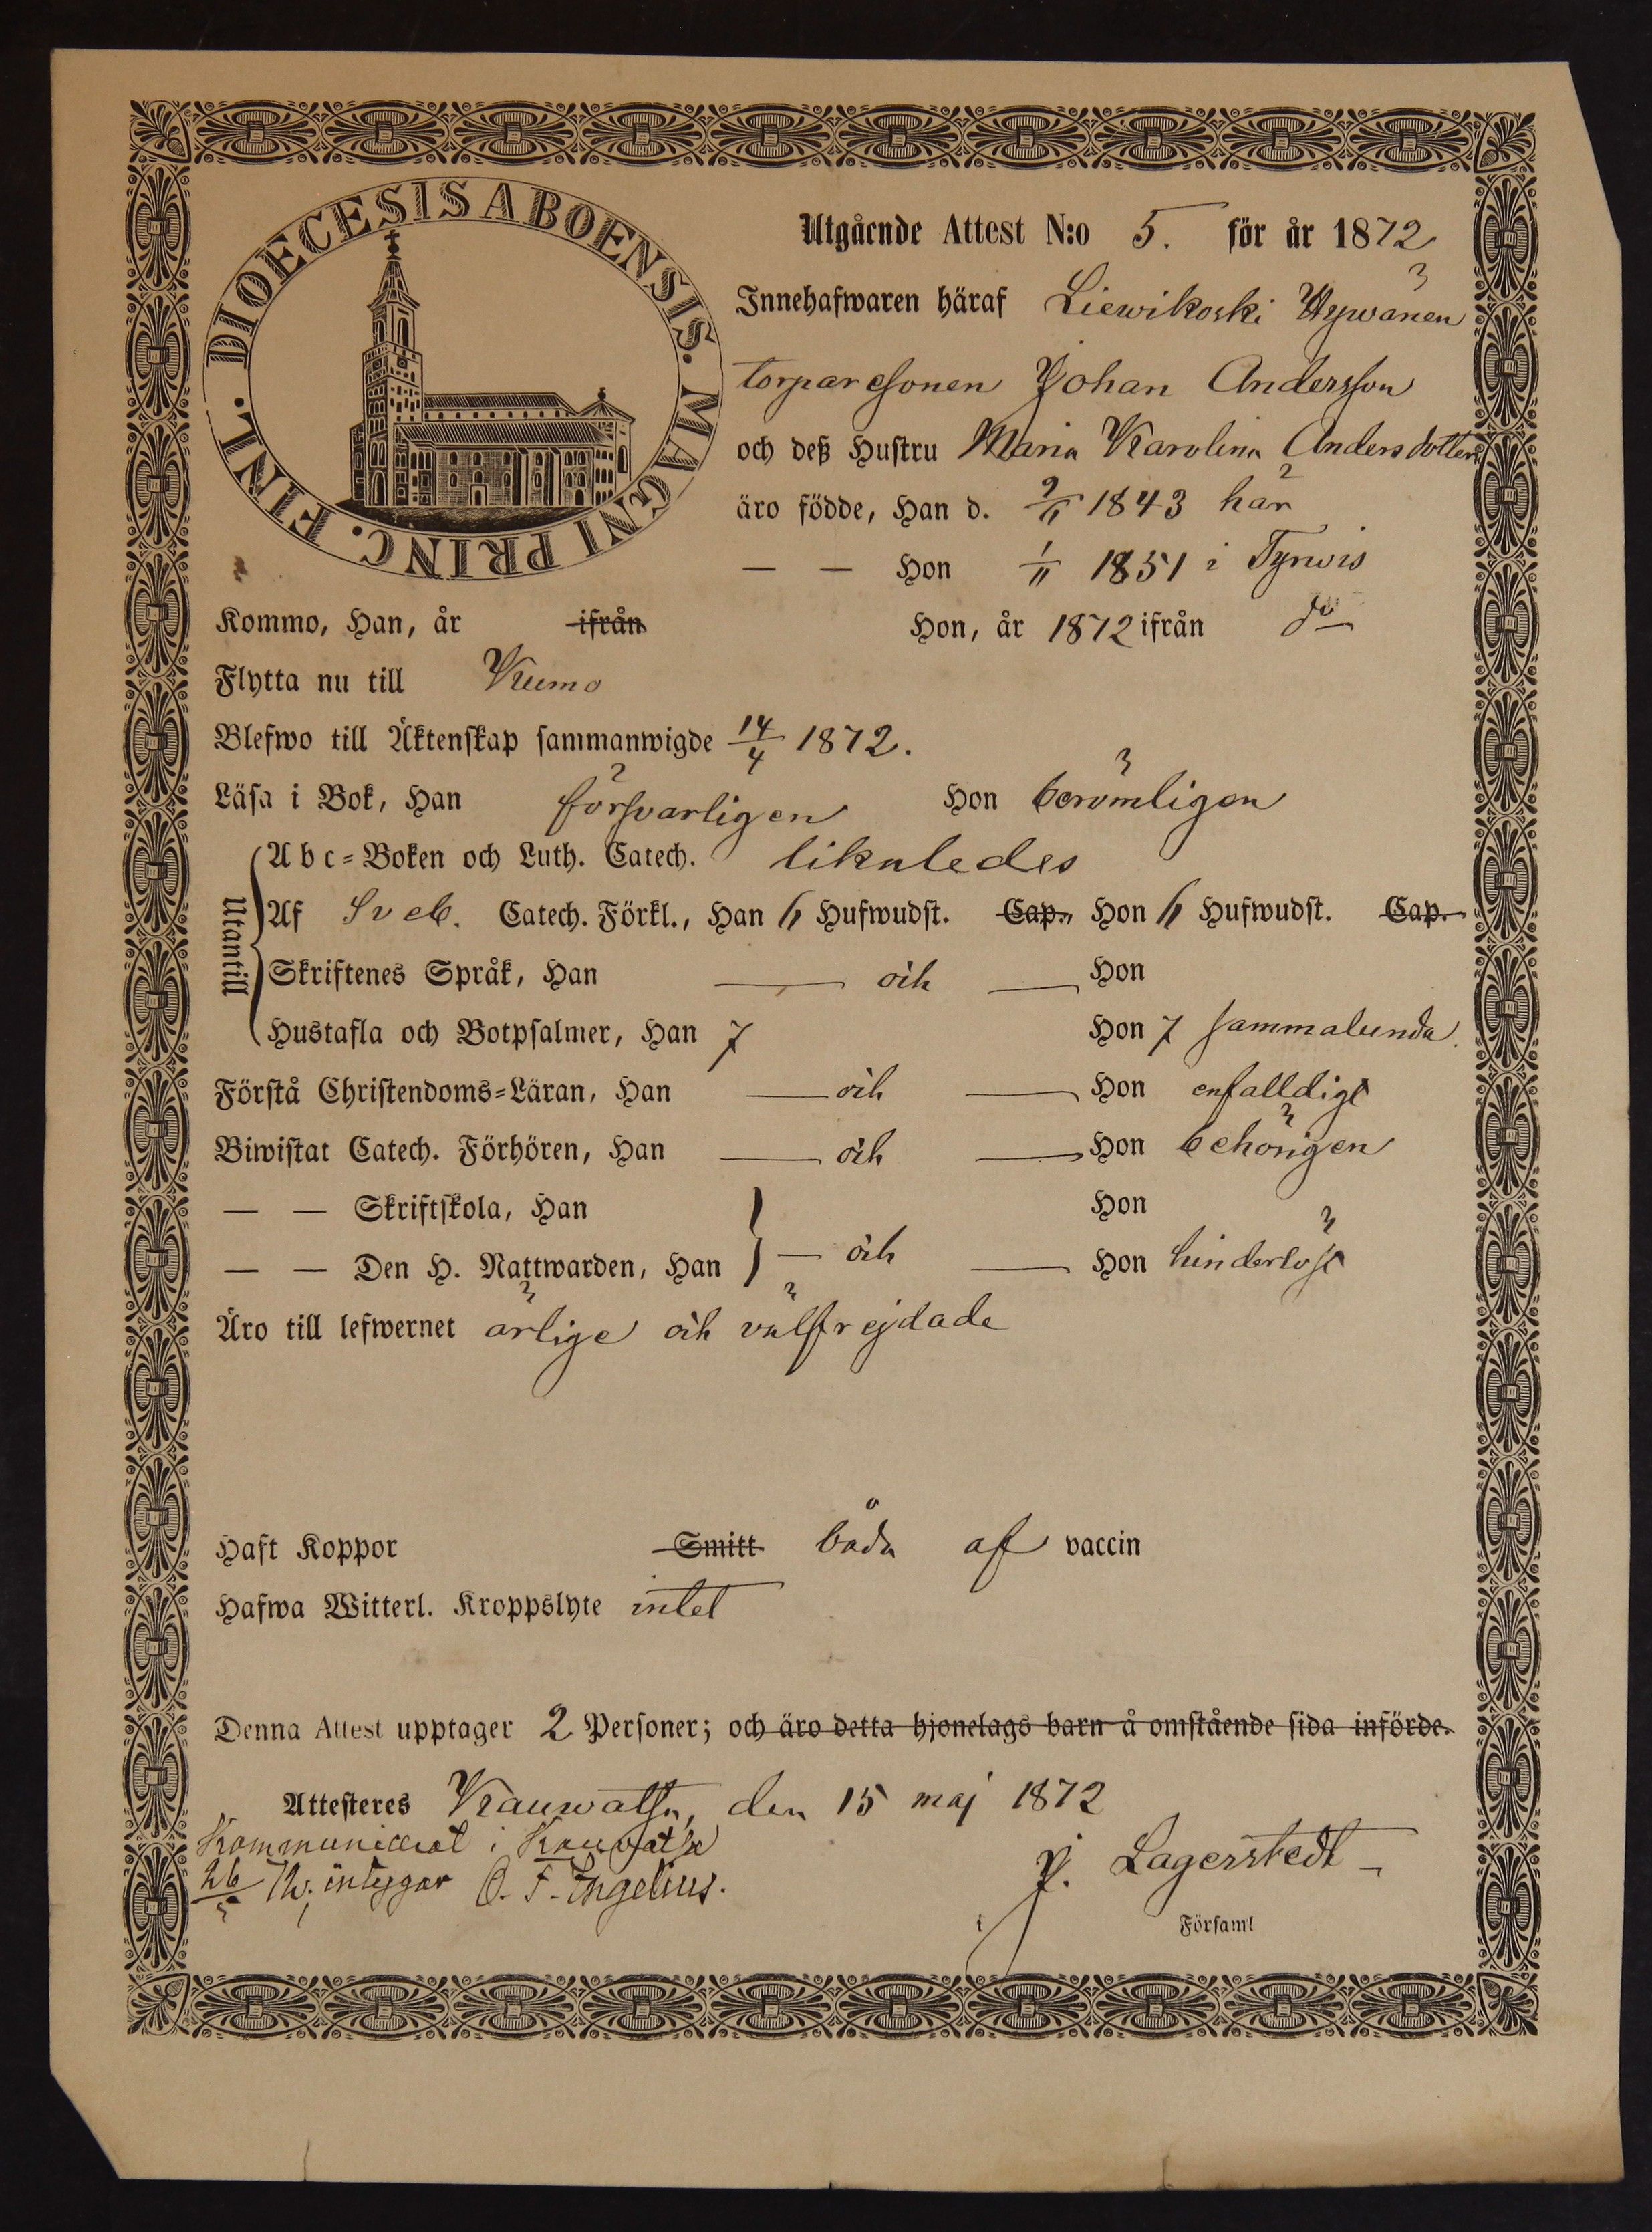 DIOECESIS ABOENSIS. MAGNI PRINC. FINL.
Utgående Attest N:o 5. för år 1872
Innehafwaren häraf Liewikoski Hywänen
torparesonen Johan Andersson
och deß Hustru Maria Karolina Andersdotter
äro födde, Han d. 9/11 1843 här
— — Hon 1/11 1851 i Tyrwis
Kommo, Han, år ifrån Hon, år 1872 ifrån do
Flytta nu till Kumo
Blefwo till Äktenskap sammanwigde 14/4 1872.
Läsa i Bok, Han försvarligen Hon berömligen
Utantill
Abc-Boken och Luth. Catech. likaledes
Af Sveb. Catech. Förkl., Han 6 Hufwudst. Cap., Hon 6 Hufwudst. Cap.
Skriftenes Språk, Han — och — Hon
Hustafla och Botpsalmer, Han 7 Hon 7 sammalunda.
Förstå Christendoms-Läran, Han — och — Hon enfalldigt
Biwistat Catech. Förhören, Han — och — Hon behörigen
— — Skriftskola, Han Hon
— — Den H. Nattwarden, Han — och — Hon hinderlöst
Äro till lefwernet ärlige och välfrejdade
Haft Koppor Smitt båda af vaccin
Hafwa Witterl. Kroppslyte intet
Denna Attest upptager 2 Personer; och äro detta hjonelags barn å omstående sida införde.
Attesteres Kauwatsa, den 15 maj 1872
Kommunicerat i Kauvatsa
26/5 72, intygar O. F. Engelius.
J. Lagerstedt
i Församl